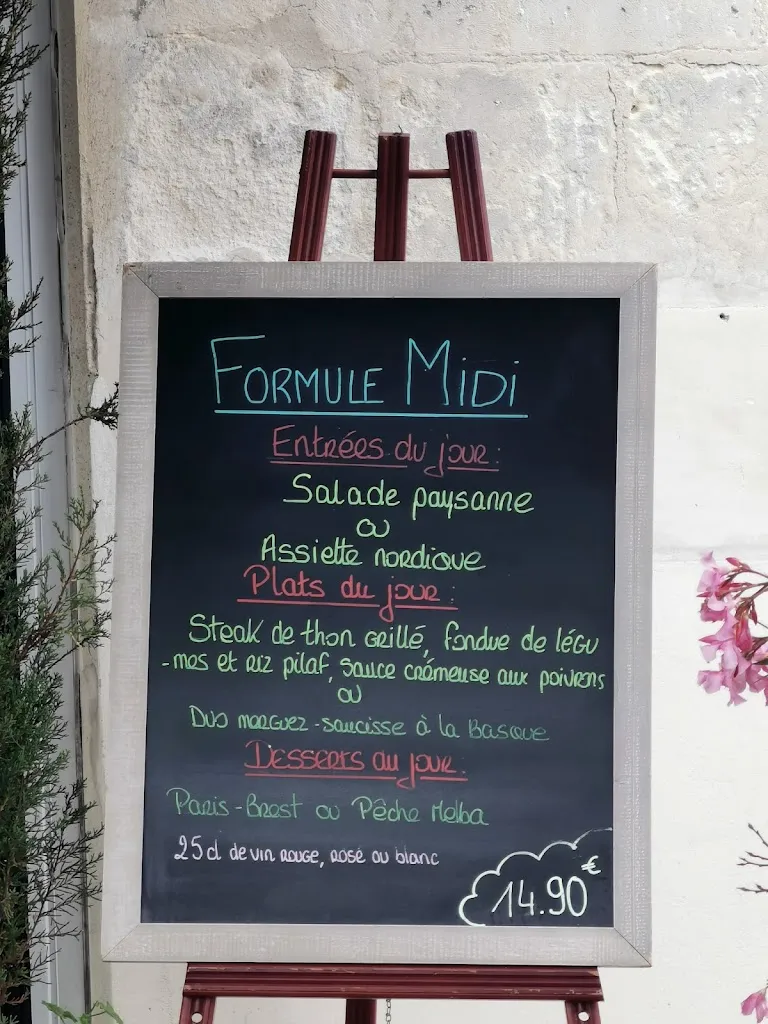 FORMULE MIDI
Entrées du jour :
Salade paysanne
ou
Assiette nordique
Plats du jour :
Steak de thon grillé, fondue de légu
-mes et riz pilaf, sauce crémeuse aux poivrons
ou
Duo merguez-saucisse à la Basque
Desserts du jour :
Paris-Brest ou Pêche Melba
25cl de vin rouge, rosé ou blanc
14.90€